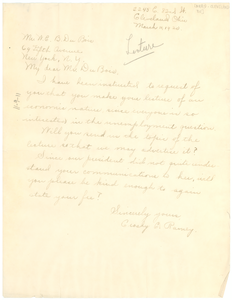 Cleveland Ohio
Lecture
Mr. W. E. B. Du Bois
69 Fifth Avenue
New York, N. Y.
My dear Mr. Du Bois,
I have been instructed to request of
you that you make your lecture of an
economic nature since everyone is so
interested in the unemployment question.
Will you send us the topic of the
lecture so that we may advertise it?
Since our president did not quite under
stand your communications to her, will
you please be kind enough to again
state your fee?
Sincerely yours